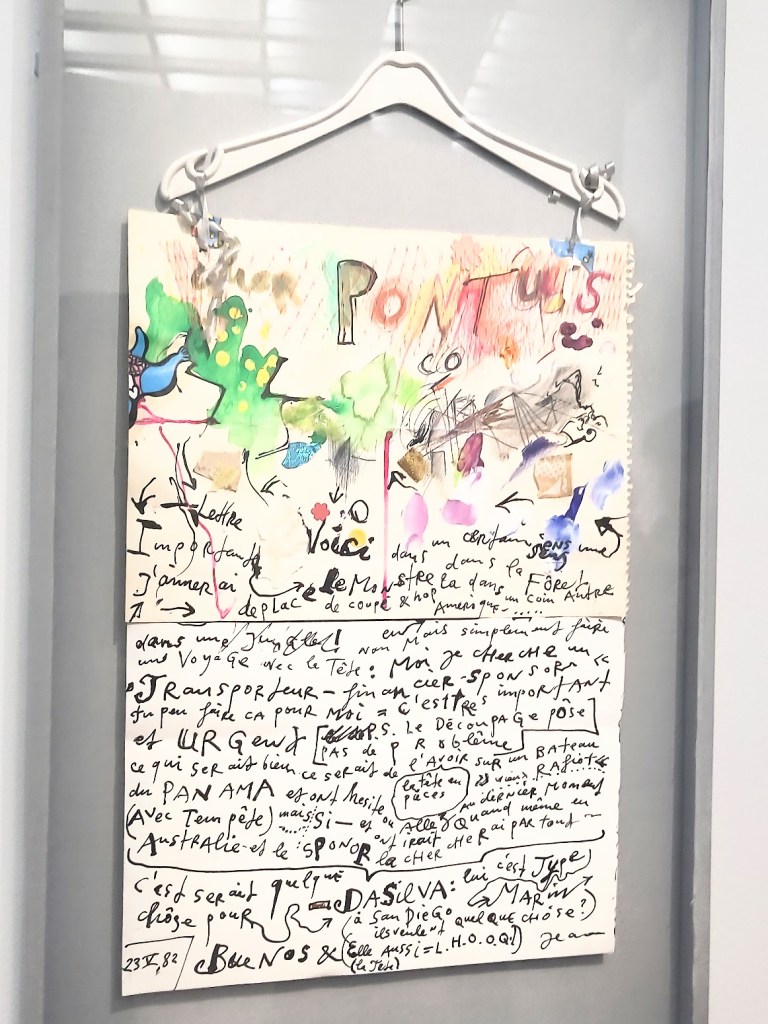 PONTUS
CO
Lettre
Importante Voici dans un certain sens une
J'aimerai le Monstre la dans dans la Fôret
deplacé de coupe & hop Amerique dans un coin AUTRE
dans une Jungle! non Mais simplement faire
une Voyage avec le Tête: Moi je CHERCHE un
TRANSporteur — financier-SPONSOR
tu peu faire ca pour Moi = C'est tres important
et URGent [P.S. Le DécoupAGe pôse
PAS de pRoblème]
ce qui serait bien ce serait de l'AVOIR sur un BATeau
du PANAMA et ont hesite la tête en pièces RAfiot
(Avec Tempête) mais Si — et ou Allez Quand même en au dernier Moment
Australie et le SPONOR ont irait la CHERCHER
C'est serait quelque DASilVA: lui c'est
chôse pour à San Diego MARin
ils veulent quelque chôse?)
23 V, 82 BueNos & (Elle Aussi = L.H.O.O.Q!) Jean
(la Tête)